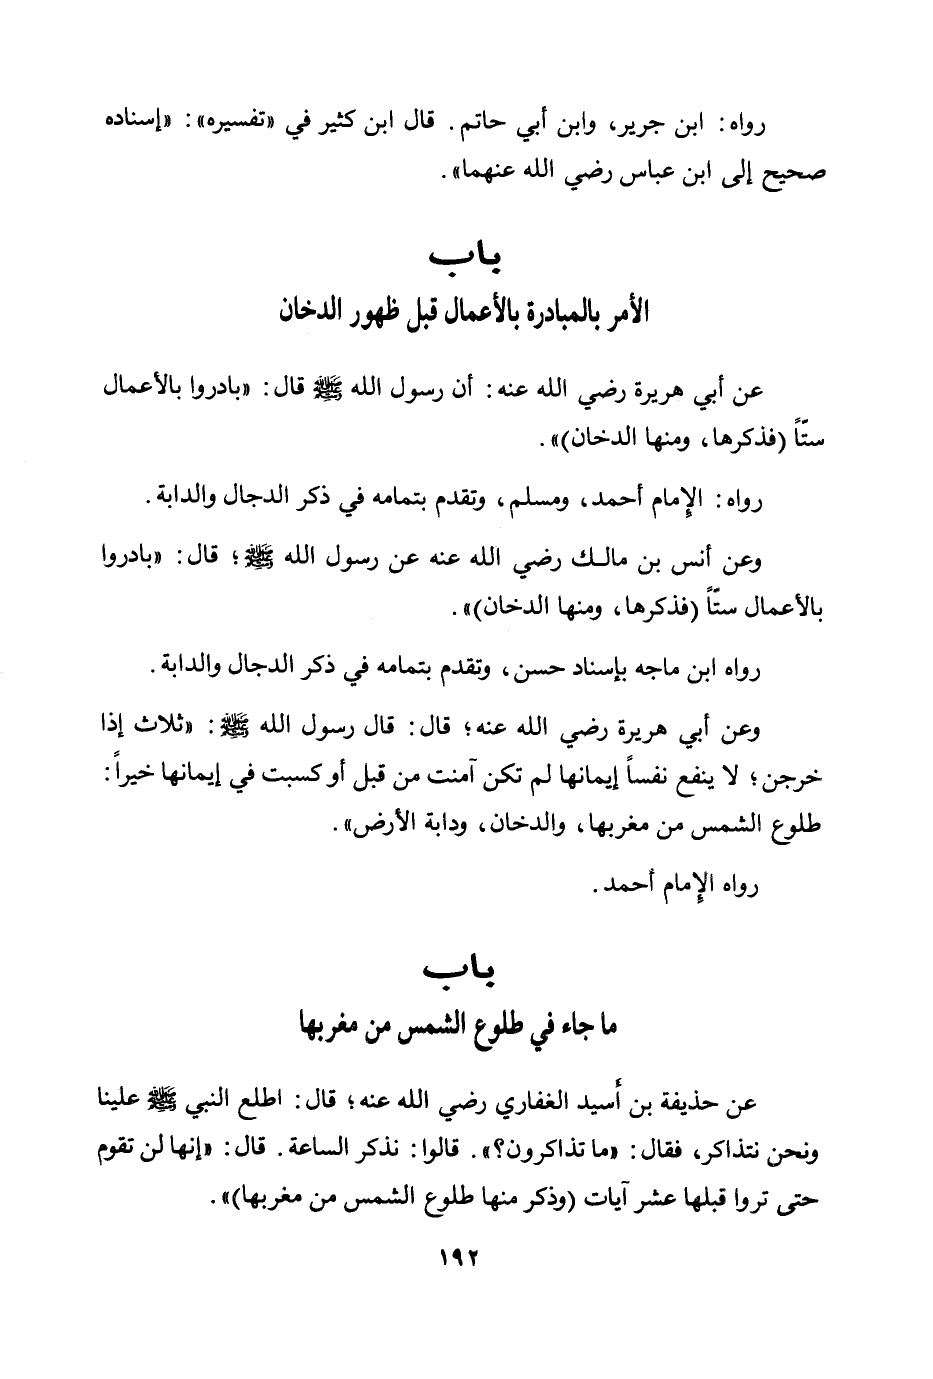 رواه: ابن جرير، وابن أبي حاتم. قال ابن كثير في «تفسيره»: «إسناده
صحيح إلى ابن عباس رضي الله عنهما».
باب
الأمر بالمبادرة بالأعمال قبل ظهور الدخان
عن أبي هريرة رضي الله عنه: أن رسول الله ﷺ قال: «بادروا بالأعمال
ستّاً (فذكرها، ومنها الدخان)».
رواه: الإمام أحمد، ومسلم، وتقدم بتمامه في ذكر الدجال والدابة.
وعن أنس بن مالك رضي الله عنه عن رسول الله ﷺ؛ قال: «بادروا
بالأعمال ستّاً (فذكرها، ومنها الدخان)».
رواه ابن ماجه بإسناد حسن، وتقدم بتمامه في ذكر الدجال والدابة.
وعن أبي هريرة رضي الله عنه؛ قال: قال رسول الله ﷺ: «ثلاث إذا
خرجن؛ لا ينفع نفساً إيمانها لم تكن آمنت من قبل أو كسبت في إيمانها خيراً:
طلوع الشمس من مغربها، والدخان، ودابة الأرض».
رواه الإمام أحمد.
باب
ما جاء في طلوع الشمس من مغربها
عن حذيفة بن أُسيد الغفاري رضي الله عنه؛ قال: اطلع النبي ﷺ علينا
ونحن نتذاكر، فقال: «ما تذاكرون؟». قالوا: نذكر الساعة. قال: «إنها لن تقوم
حتى تروا قبلها عشر آيات (وذكر منها طلوع الشمس من مغربها)».
١٩٢